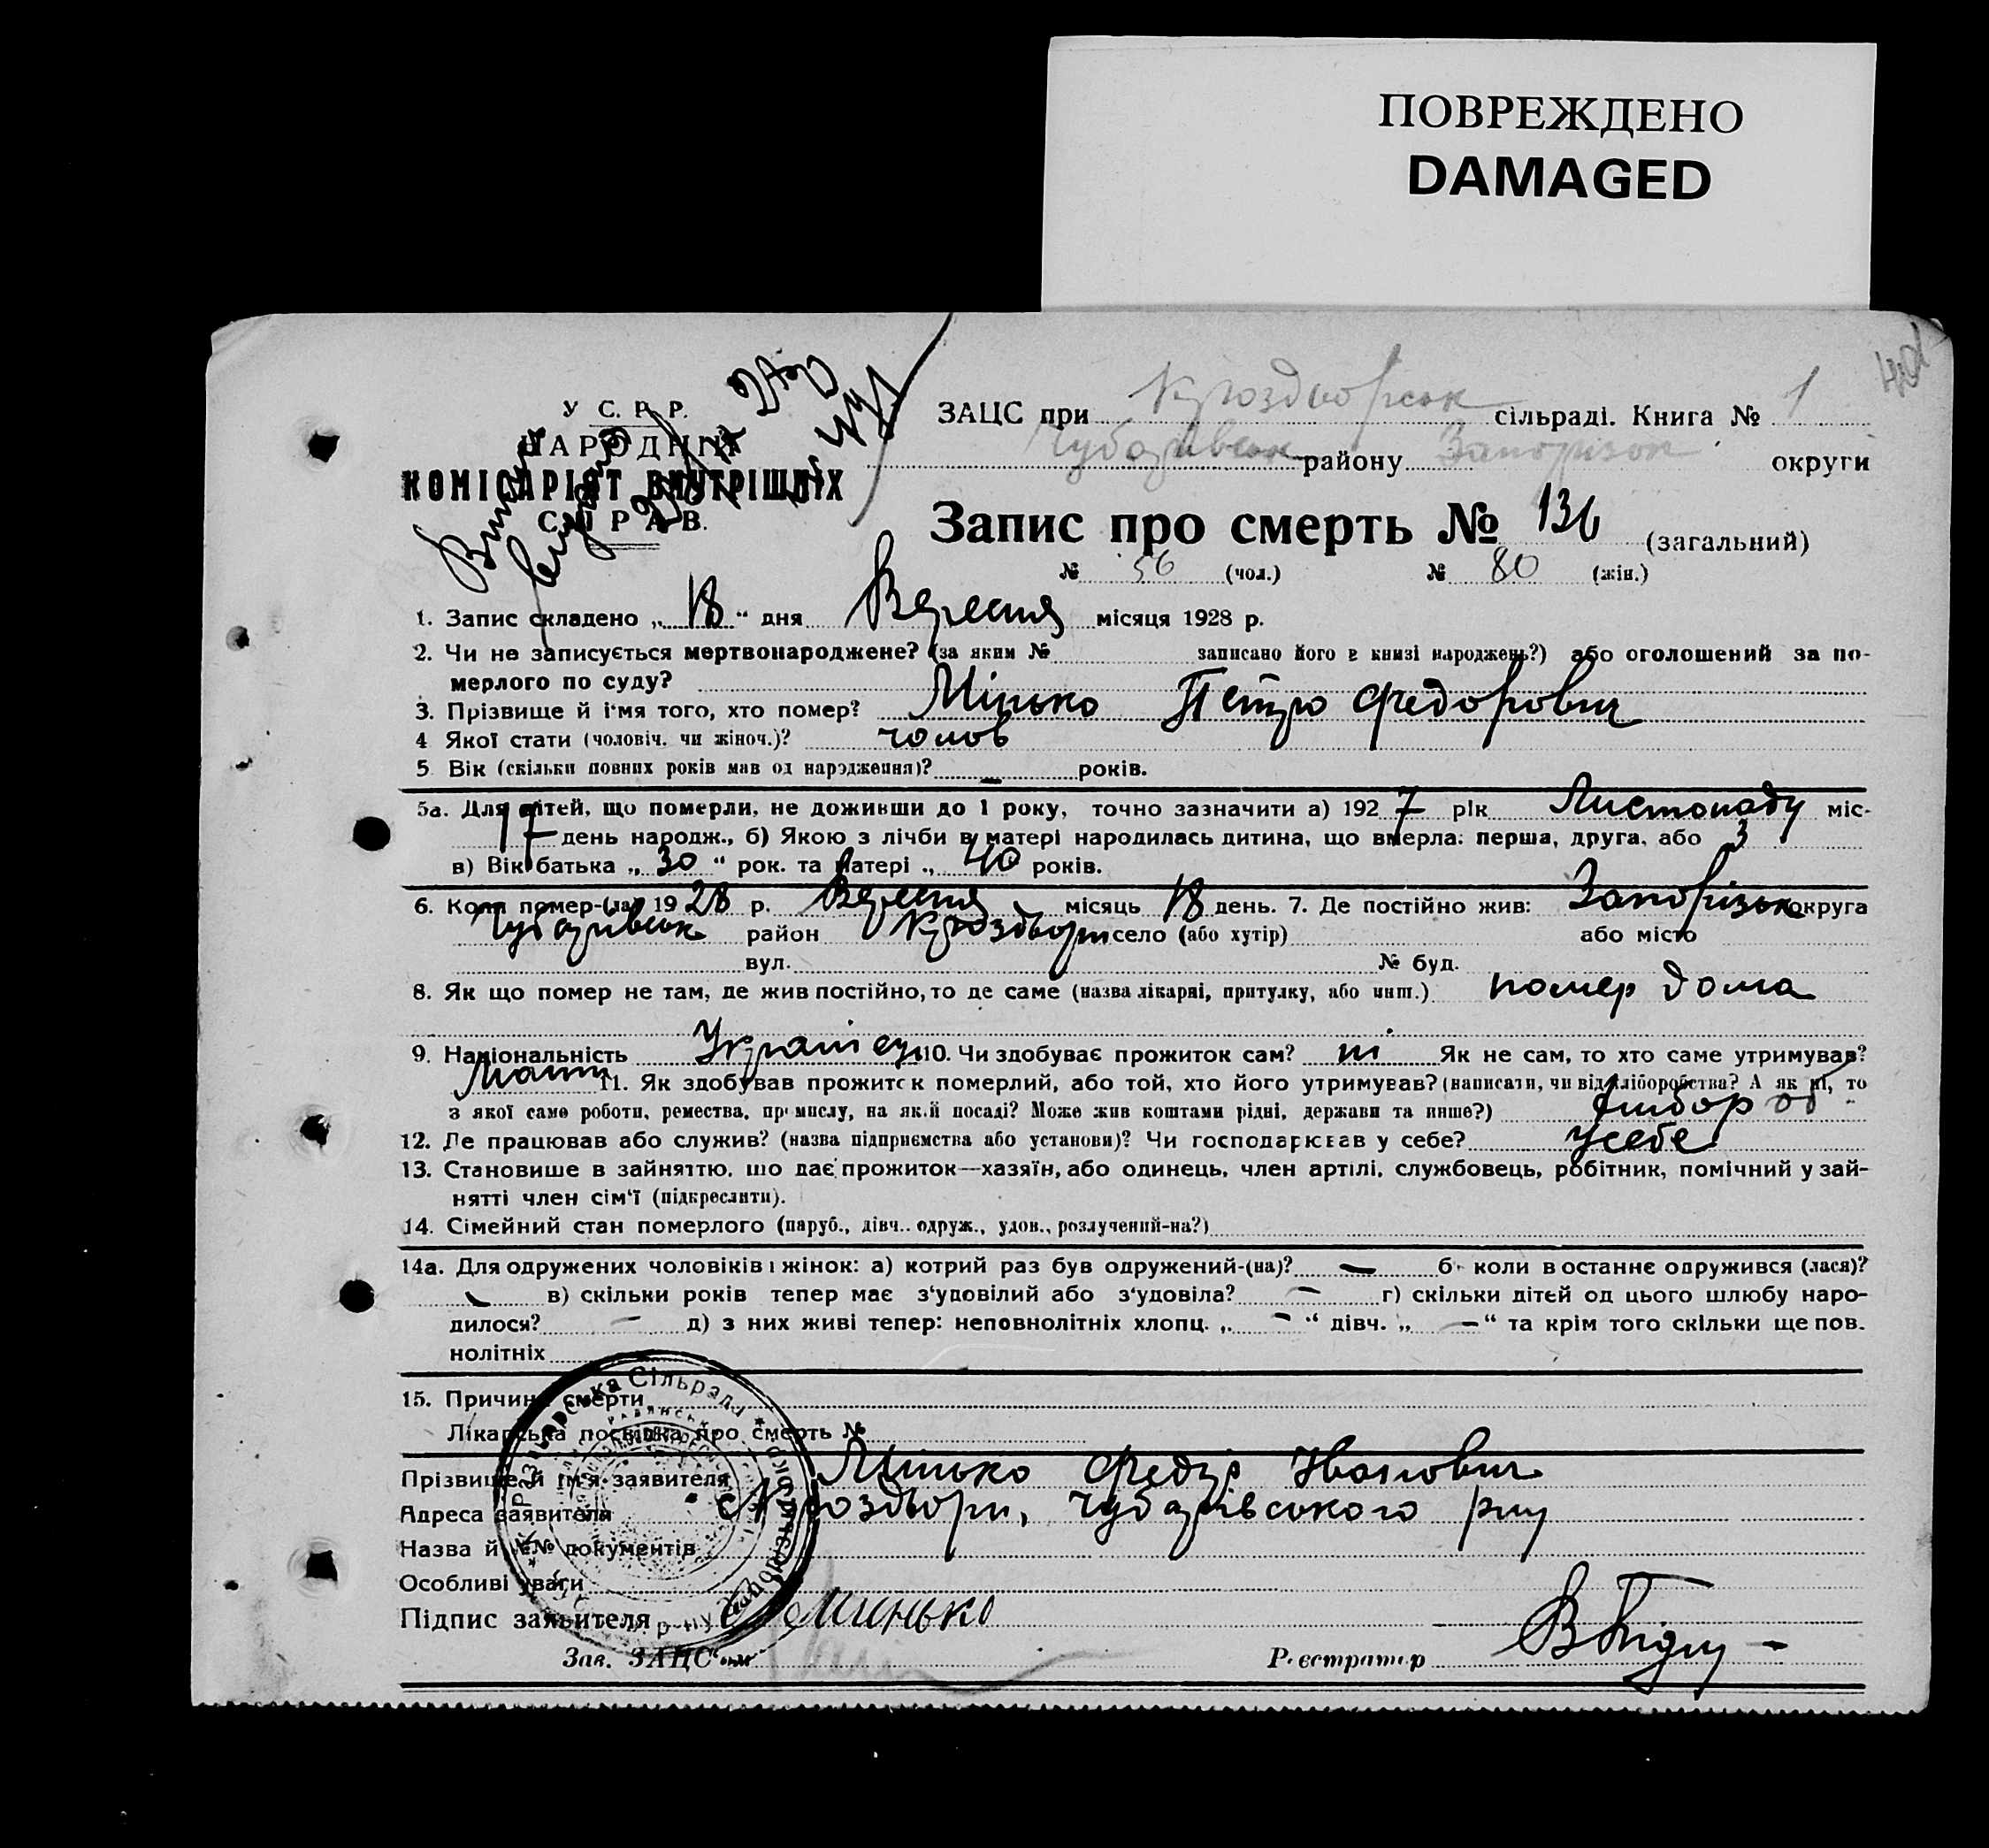 ПОВРЕЖДЕНО
DAMAGED
У С. Р. Р.
НАРОДНИЙ
КОМІСАРІЯТ ВНУТРІШНІХ
СПРАВ.
ЗАЦС при сільраді. Книга № 1
району округи
Запис про смерть № 136 (загальний)
№ 56 (чол.) № 80 (жін.)
1. Запис складено „ 18 “ дня Вересня місяця 1928 р.
2. Чи не записується мертвонароджене? (за яким № записано його в книзі народжень?) або оголошений за по-
мерлого по суду?
3. Прізвище й і'мя того, хто помер? Мінько Петро Федорович
4 Якої стати (чоловіч. чи жіноч.)? чолов
5 Вік (скільки повних років мав од народження)? – років.
5а. Для дітей, що померли, не доживши до 1 року, точно зазначити а) 1927 рік Листопаду міс-
17 день народж., б) Якою з лічби в матері народилась дитина, що вмерла: перша, друга, або 3
в) Вік батька „ 30 “ рок. та матері „ 40 років.
6. Коли помер-(ла) 1928 р. Вересня місяць 18 день. 7. Де постійно жив: Запорізьк округа
Чубарівськ район село (або хутір) або місто
вул. № буд.
8. Як що помер не там, де жив постійно, то де саме (назва лікарні, притулку, або инш.) помер дома
9. Національність Українець 10. Чи здобуває прожиток сам? ні Як не сам, то хто саме утримував?
11. Як здобував прожиток померлий, або той, хто його утримував? (написати, чи від хліборобства? А як ні, то
з якої саме роботи, ремества, промислу, на якій посаді? Може жив коштами рідні, держави та инше?)
12. Де працював або служив? (назва підприємства або установи)? Чи господарював у себе? усебе
13. Становище в зайняттю, що дає прожиток—хазяїн, або одинець, член артілі, службовець, робітник, помічний у зай-
нятті член сім'ї (підкреслити).
14. Сімейний стан померлого (паруб., дівч.. одруж., удов., розлучений-на?)
14а. Для одружених чоловіків і жінок: а) котрий раз був одружений-(на)? – б коли в останнє одружився (лася)?
– в) скільки років тепер має з'удовілий або з'удовіла? – г) скільки дітей од цього шлюбу наро-
дилося? – д) з них живі тепер: неповнолітніх хлопц. „ – “ дівч. „ – “ та крім того скільки ще пов.
нолітніх
15. Причина смерти
Лікарська посвідка про смерть №
Прізвище й ім'я заявителя Мінько Федір Іванович
Адреса заявителя Чубарівського рну
Назва й №№ документів
Особливі уваги
Підпис заявителя Минько
Зав. ЗАЦС'ом Реєстратор